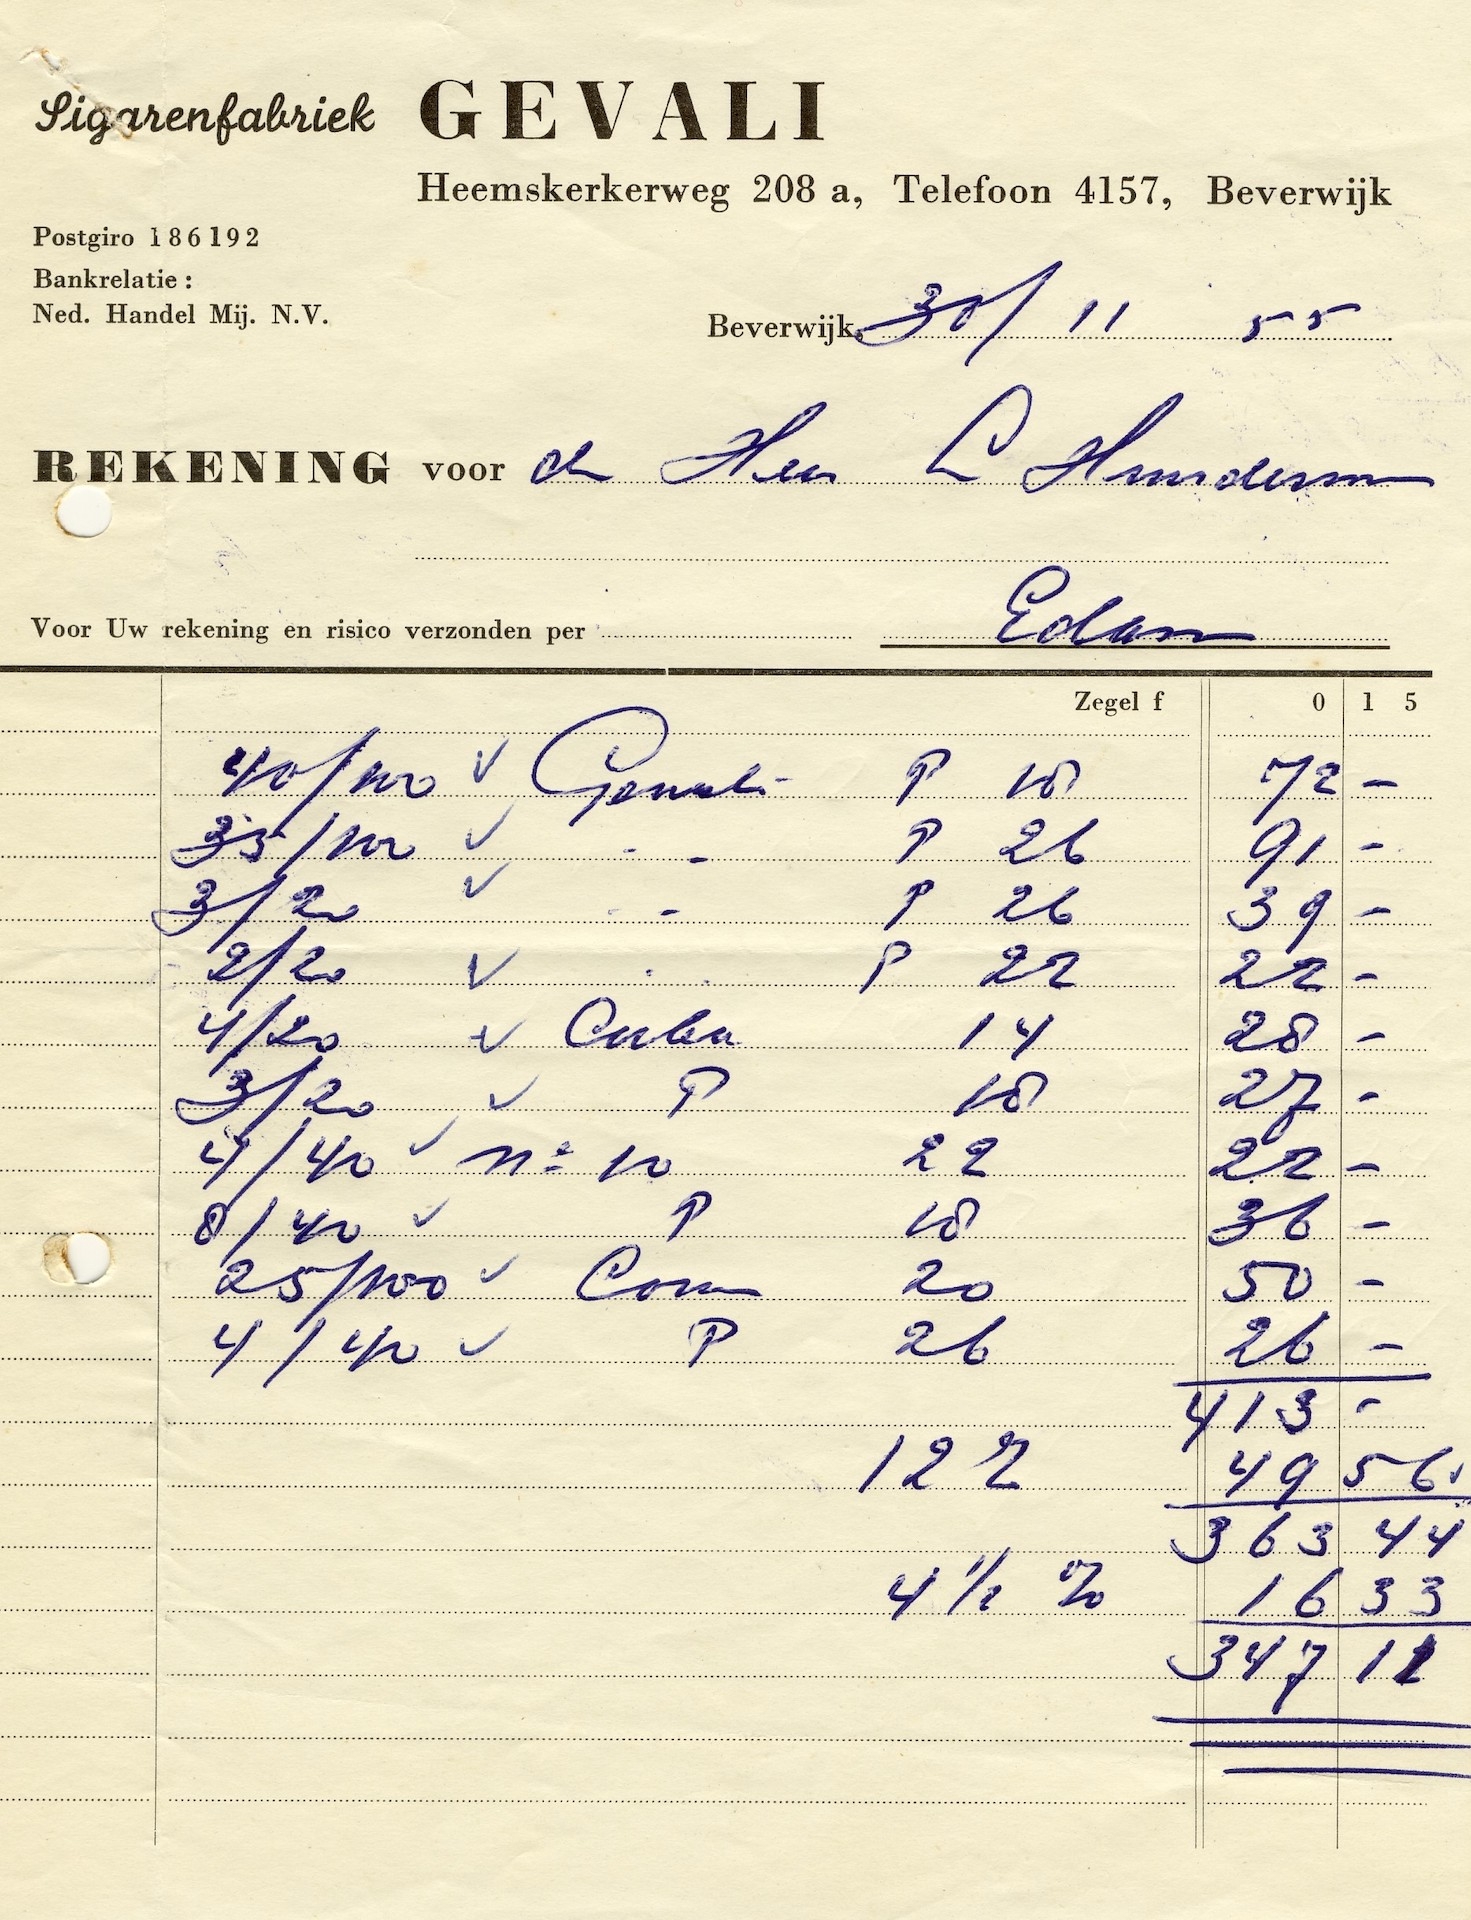 Sigarenfabriek GEVALI
Heemskerkerweg 208 a, Telefoon 4157, Beverwijk
Postgiro 186192
Bankrelatie :
Ned. Handel Mij. N.V.
Beverwijk, 30/11 55
REKENING voor de Heer L
Edam
Voor Uw rekening en risico verzonden per
Zegel f 0 15
40/100 ✓ Gevali P 18 72 -
35/100 ✓ - - P 26 91 -
3/20 ✓ - - P 26 39 -
2/20 ✓ - - P 22 22 -
4/20 ✓ Cuba 14 28 -
3/20 ✓ P 18 27 -
4/40 ✓ no 10 22 22 -
8/40 ✓ P 18 36 -
25/100 ✓ 20 50 -
4/40 ✓ P 26 26 -
413 -
12 % 49 56
363 44
4 1/2 % 16 33
347 11